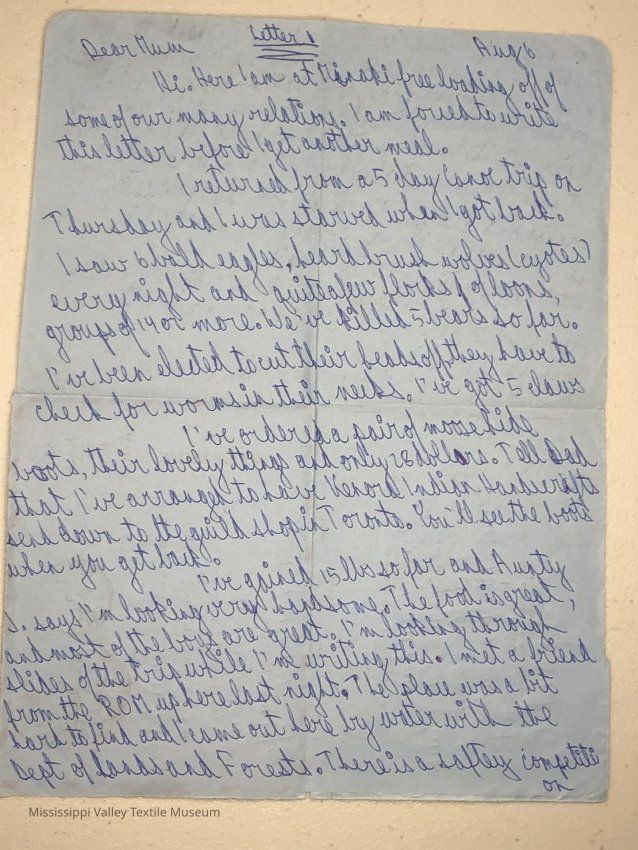 Letter 1
Dear Mum Aug 6
Hi. Here I am at Minaki free loading off of
some of our many relations. I am forced to write
this letter before I get another meal.
I returned from a 5 day Canoe trip on
Thursday and I was starved when I got back.
I saw 6 bald eagles, heard brush wolves (cyotes)
every night and quite a few flocks of loons,
groups of 14 or more. We've killed 5 bears so far.
I've been elected to cut their heads off, they have to
check for worms in their necks. I've got 5 claws
I've ordered a pair of moose hide
boots, their lovely things and only 18 dollars. Tell Dad
that I've arranged to have Kenora Indian Handicrafts
send down to the guild shop in Toronto. You'll see the boots
when you get back.
I've gained 15 lbs so far and Aunty
J. says I'm looking very handsome. The food is great,
and most of the boys are great. I'm looking through
slides of the trip while I'm writing this. I met a friend
from the ROM up here last night. The place was a bit
hard to find and I came out here by water with the
Dept of Lands and Forests. There is a saftey competiti
on
Mississippi Valley Textile Museum